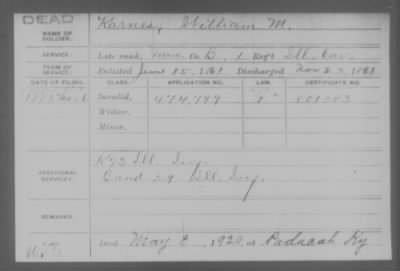 DEAD
NAME OF SOLDIER: Karnes, William M.
SERVICE: Late rank, Mus. Co. B, 1 Reg't Ill. Cav.
TERM OF SERVICE: Enlisted June 15, 1861 Discharged Nov 23, 1861
DATE OF FILING. CLASS. APPLICATION NO. LAW. CERTIFICATE NO.
1883 Mar 6 Invalid, 474,799 501383
Widow,
Minor,
ADDITIONAL SERVICES: K 73 Ill. Inf.
C and 29 Ill. Inf.
REMARKS:
Died May 8, 1920, at Paducah Ky